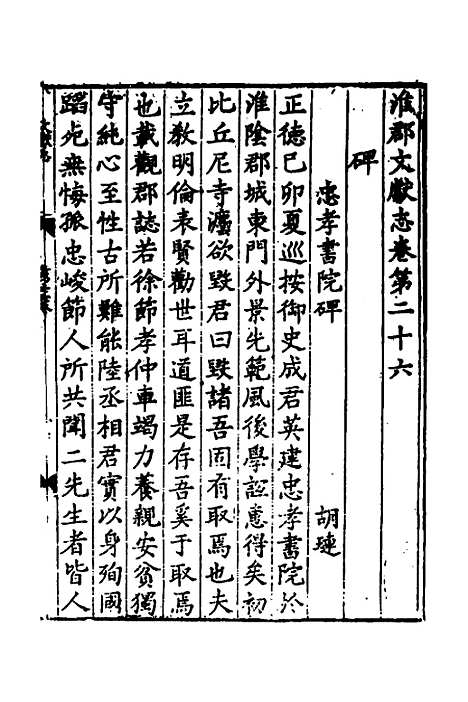 淮郡文獻志卷第二十六
碑
忠孝書院碑 胡璉
正德己卯夏巡按御史成君英建忠孝書院於
淮陰郡城東門外景先範風後學誼懿得矣初
比丘尼寺瀍欲毀君曰毀諸吾固有取焉也夫
立教明倫表賢勸世耳道匪是存吾奚于取焉
也載觀郡誌若徐節孝仲車竭力養親安貧獨
守純心至性古所難能陸丞相君實以身殉國
蹈死無悔孤忠峻節人所共聞二先生者皆人